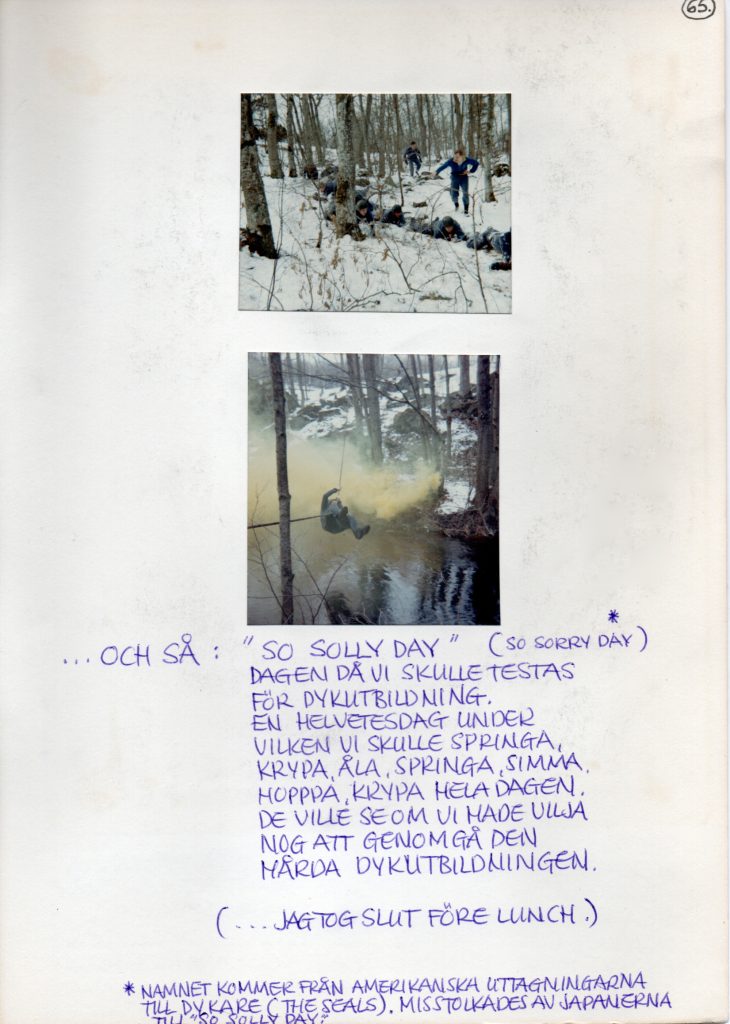 65.
...OCH SÅ: "SO SOLLY DAY" (SO SORRY DAY)*
DAGEN DÅ VI SKULLE TESTAS
FÖR DYKUTBILDNING.
EN HELVETESDAG UNDER
VILKEN VI SKULLE SPRINGA,
KRYPA, ÅLA, SPRINGA, SIMMA.
HOPPPA, KRYPA HELA DAGEN.
DE VILLE SE OM VI HADE VILJA
NOG ATT GENOMGÅ DEN
HÅRDA DYKUTBILDNINGEN.
(...JAG TOG SLUT FÖRE LUNCH.)
* NAMNET KOMMER FRÅN AMERIKANSKA UTTAGNINGARNA
TILL DYKARE (THE SEALS). MISSTOLKADES AV JAPANERNA
TILL "SO SOLLY DAY."